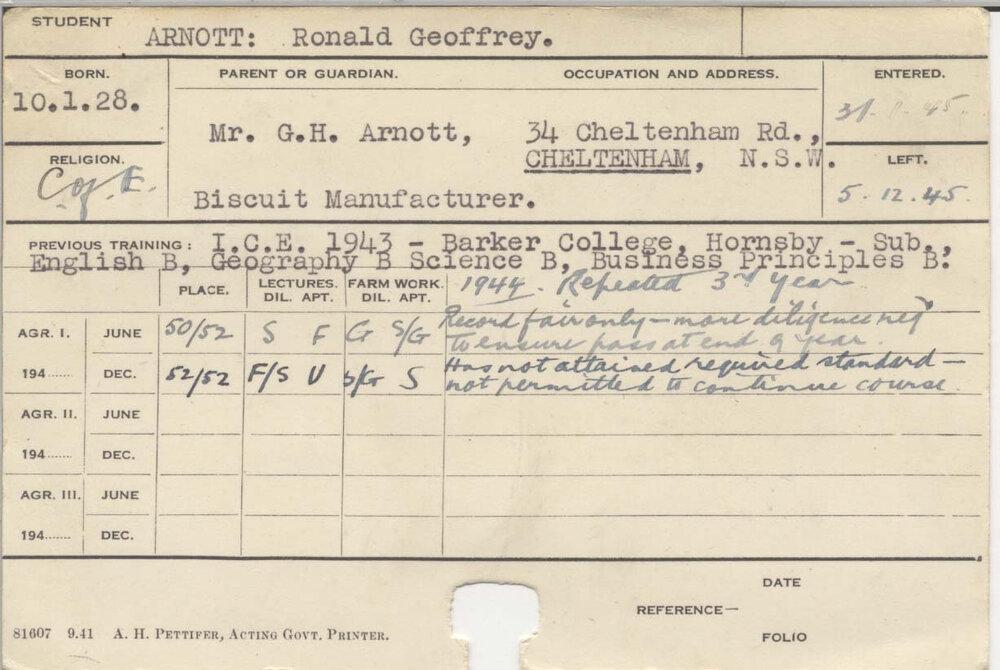 STUDENT
ARNOTT: Ronald Geoffrey.
BORN. PARENT OR GUARDIAN. OCCUPATION AND ADDRESS. ENTERED.
10.1.28. 31. 45.
Mr. G.H. Arnott, 34 Cheltenham Rd.,
RELIGION. CHELTENHAM, N.S.W. LEFT.
C of E. Biscuit Manufacturer. 5.12.45.
PREVIOUS TRAINING: I.C.E. 1943 - Barker College, Hornsby - Sub.,
English B, Geography B Science B, Business Principles B.
PLACE. LECTURES. FARM WORK. 1944. Repeated 3rd Year
DIL. APT. DIL. APT.
AGR. I. JUNE 50/52 S F G S/G Record fair only - more diligence neg
to ensure pass at end of year.
194...... DEC. 52/52 F/S U S/G S Has not attained required standard -
not permitted to continue course.
AGR. II. JUNE
194...... DEC.
AGR. III. JUNE
194...... DEC.
DATE
REFERENCE—
FOLIO
81607 9.41 A. H. PETTIFER, ACTING GOVT. PRINTER.